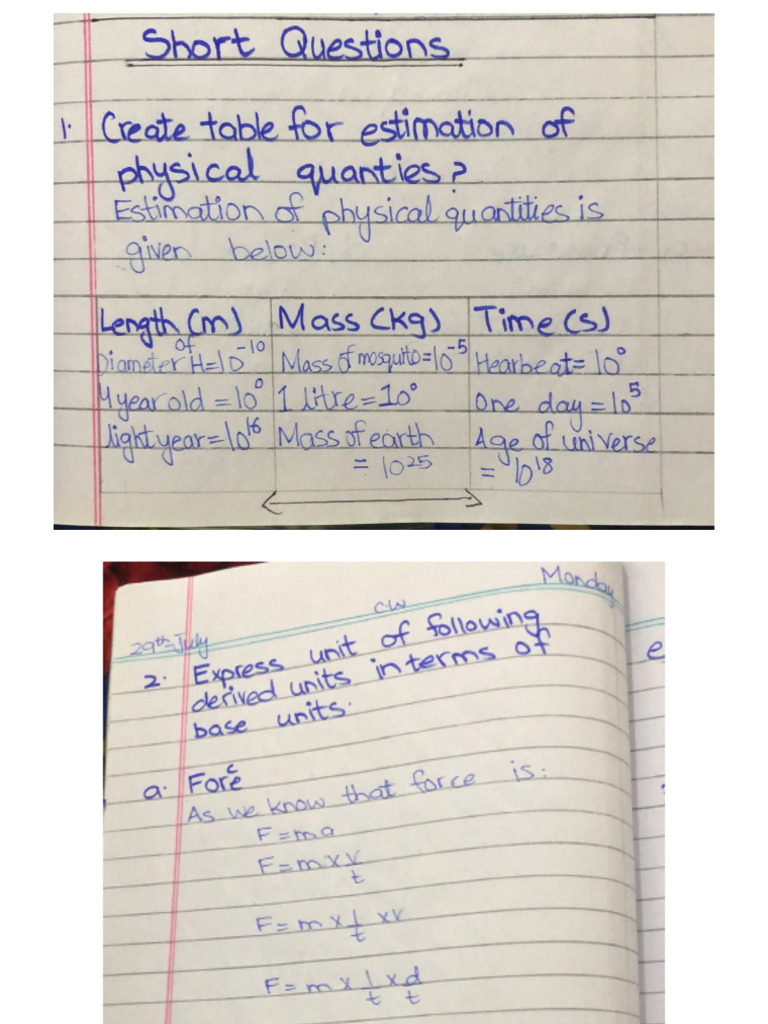 Short Questions
1. Create table for estimation of
physical quanties?
Estimation of physical quantities is
given below:
Length (m) Mass (kg) Time (s)
Diameter of H=10⁻¹⁰ Mass of mosquito=10⁻⁵ Hearbeat=10⁰
4 year old =10⁰ 1 litre=10⁰ One day=10⁵
light year=10¹⁶ Mass of earth Age of universe
= 10²⁵ = 10¹⁸
Monday
C.W
29th July
2. Express unit of following
derived units in terms of
base units.
a. Force
As we know that force is:
F=ma
F=m×v/t
F=m×1/t×v
F=m×1/t×d/t
e